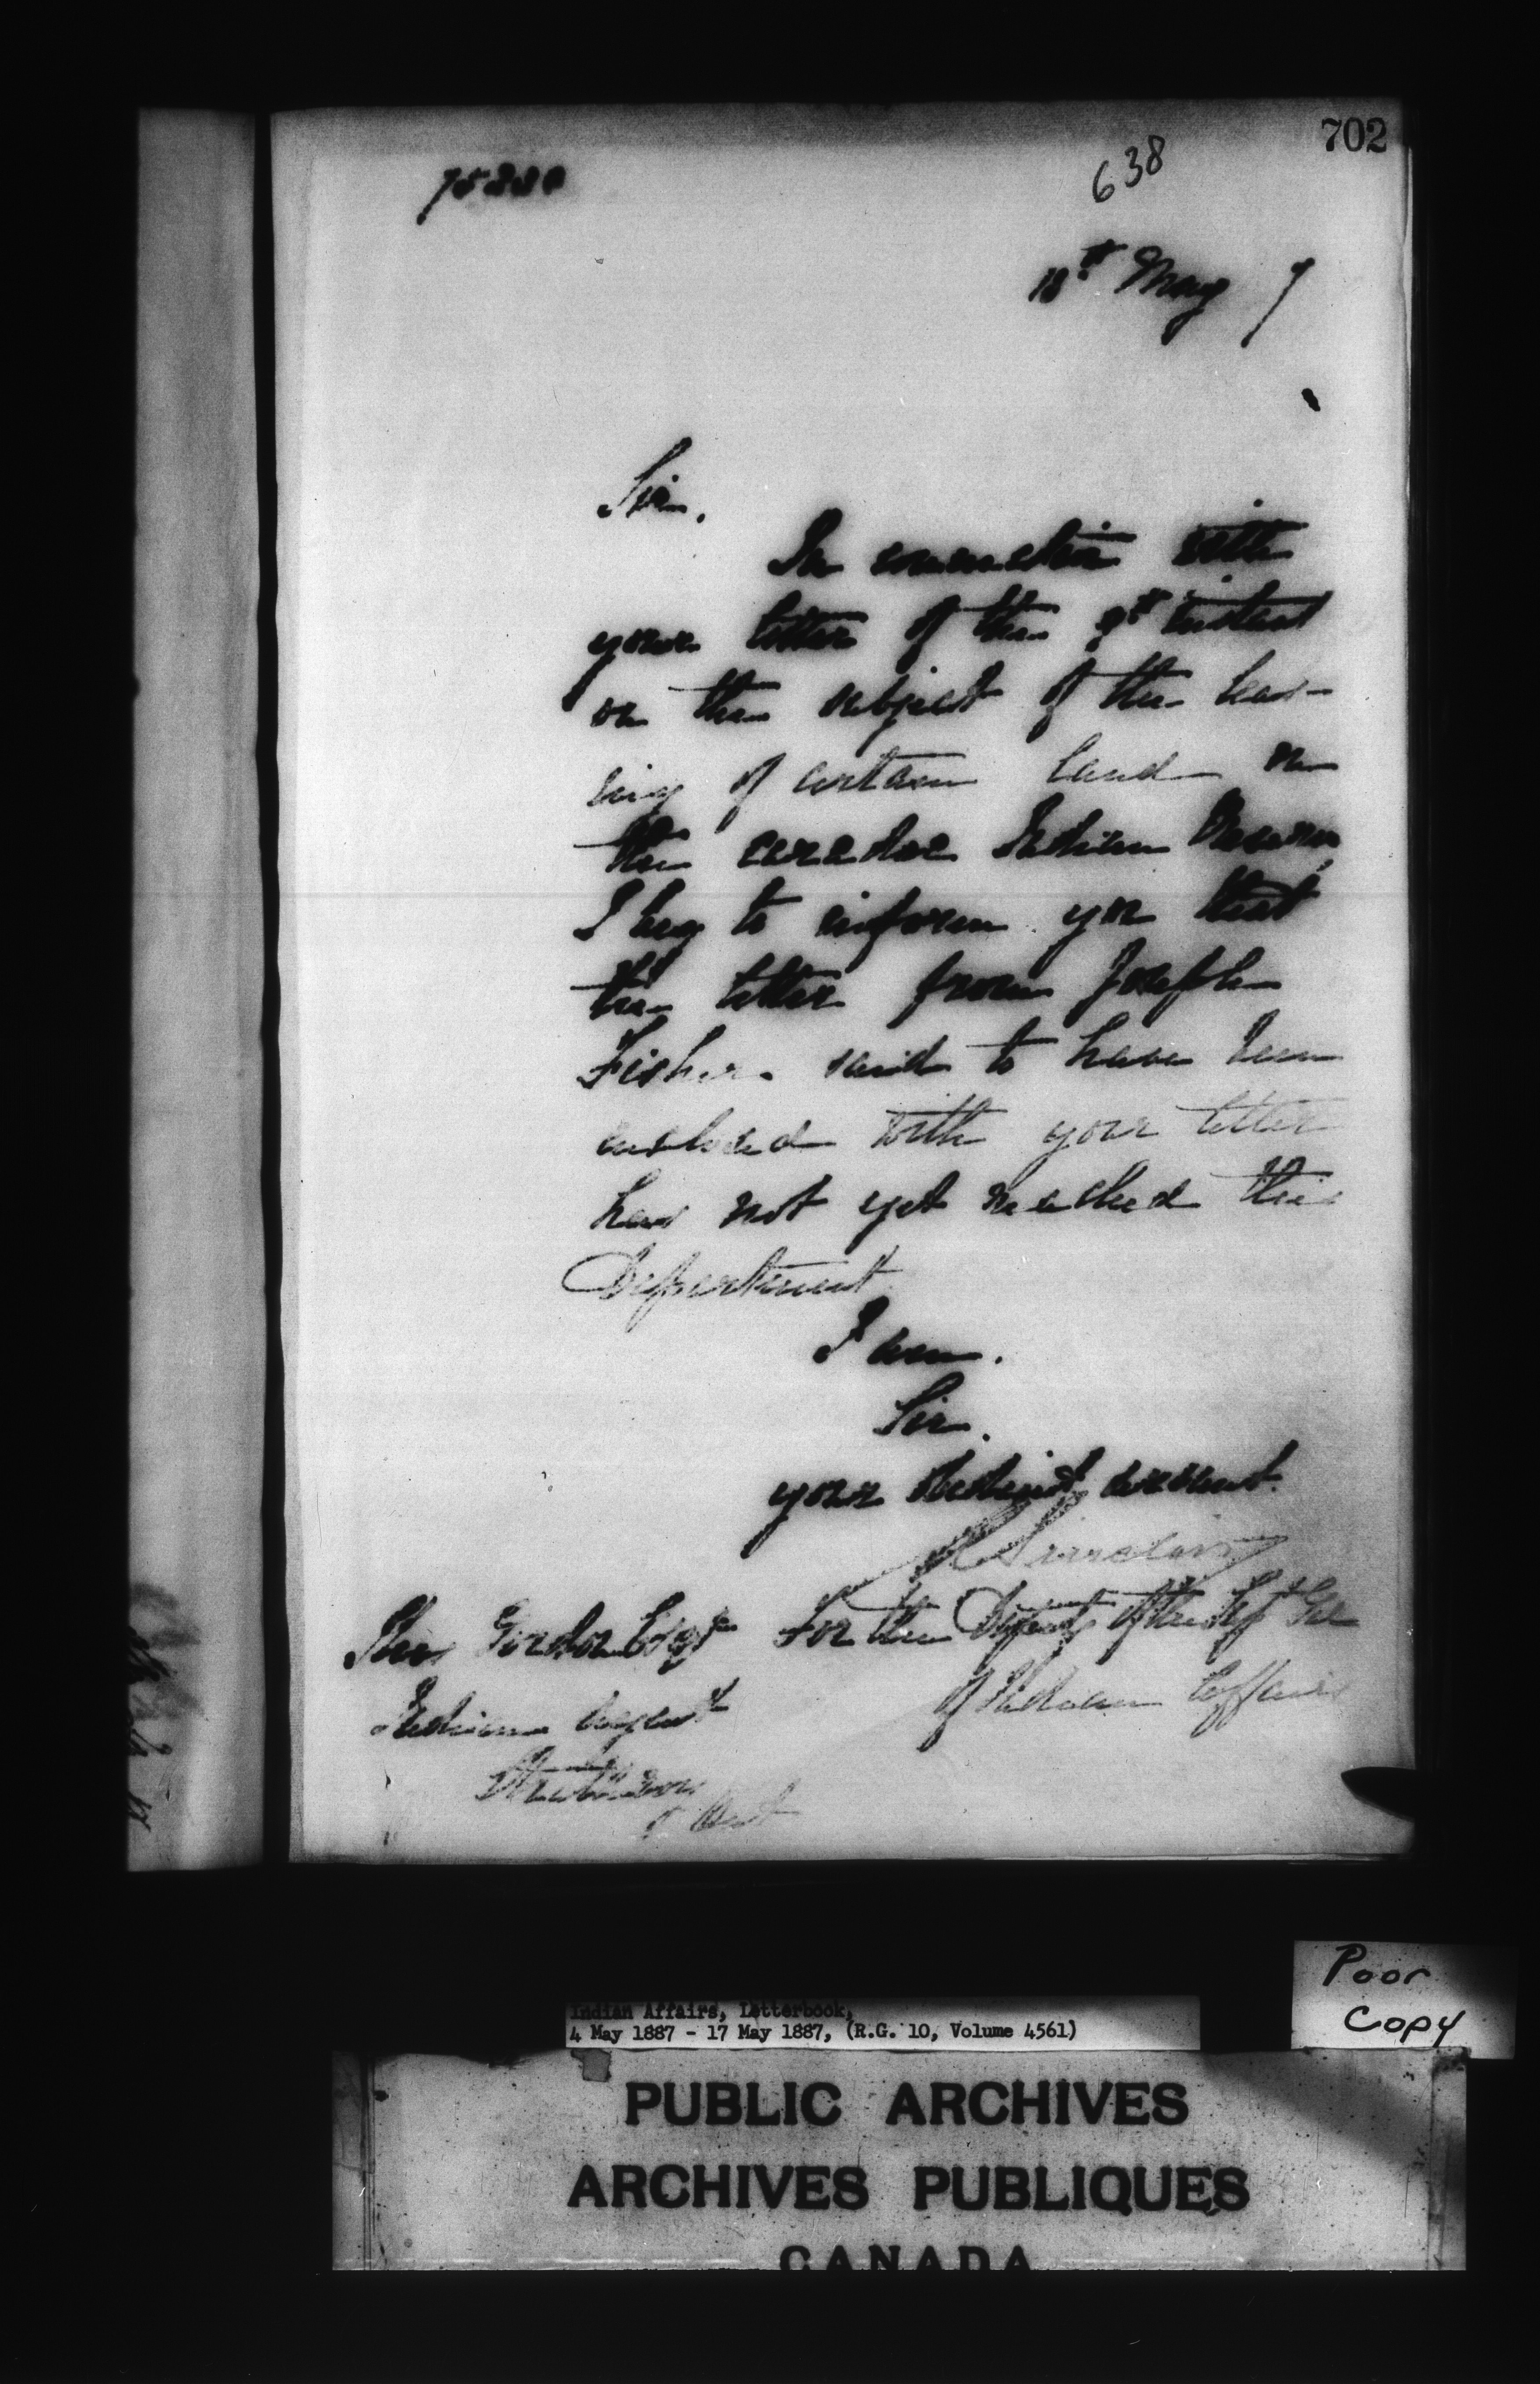 702
638
18th May 7
Sir,
In connection with
your letter of the 9th instant
on the subject of the leas-
ing of certain land on
the Caradoc Indian Reserve,
I beg to inform you that
the letter from Joseph
Fisher said to have been
enclosed with your letter
has not yet reached this
Department
I am.
Sir.
your obedient servant.
R Sinclair
For the Deputy of the Supt Gen
of Indian Affairs
Gordon Esqr
Indian Agent
Strathroy
Ont
Poor
Copy
Indian Affairs, Letterbook,
4 May 1887 - 17 May 1887, (R.G. 10, Volume 4561)
PUBLIC ARCHIVES
ARCHIVES PUBLIQUES
CANADA